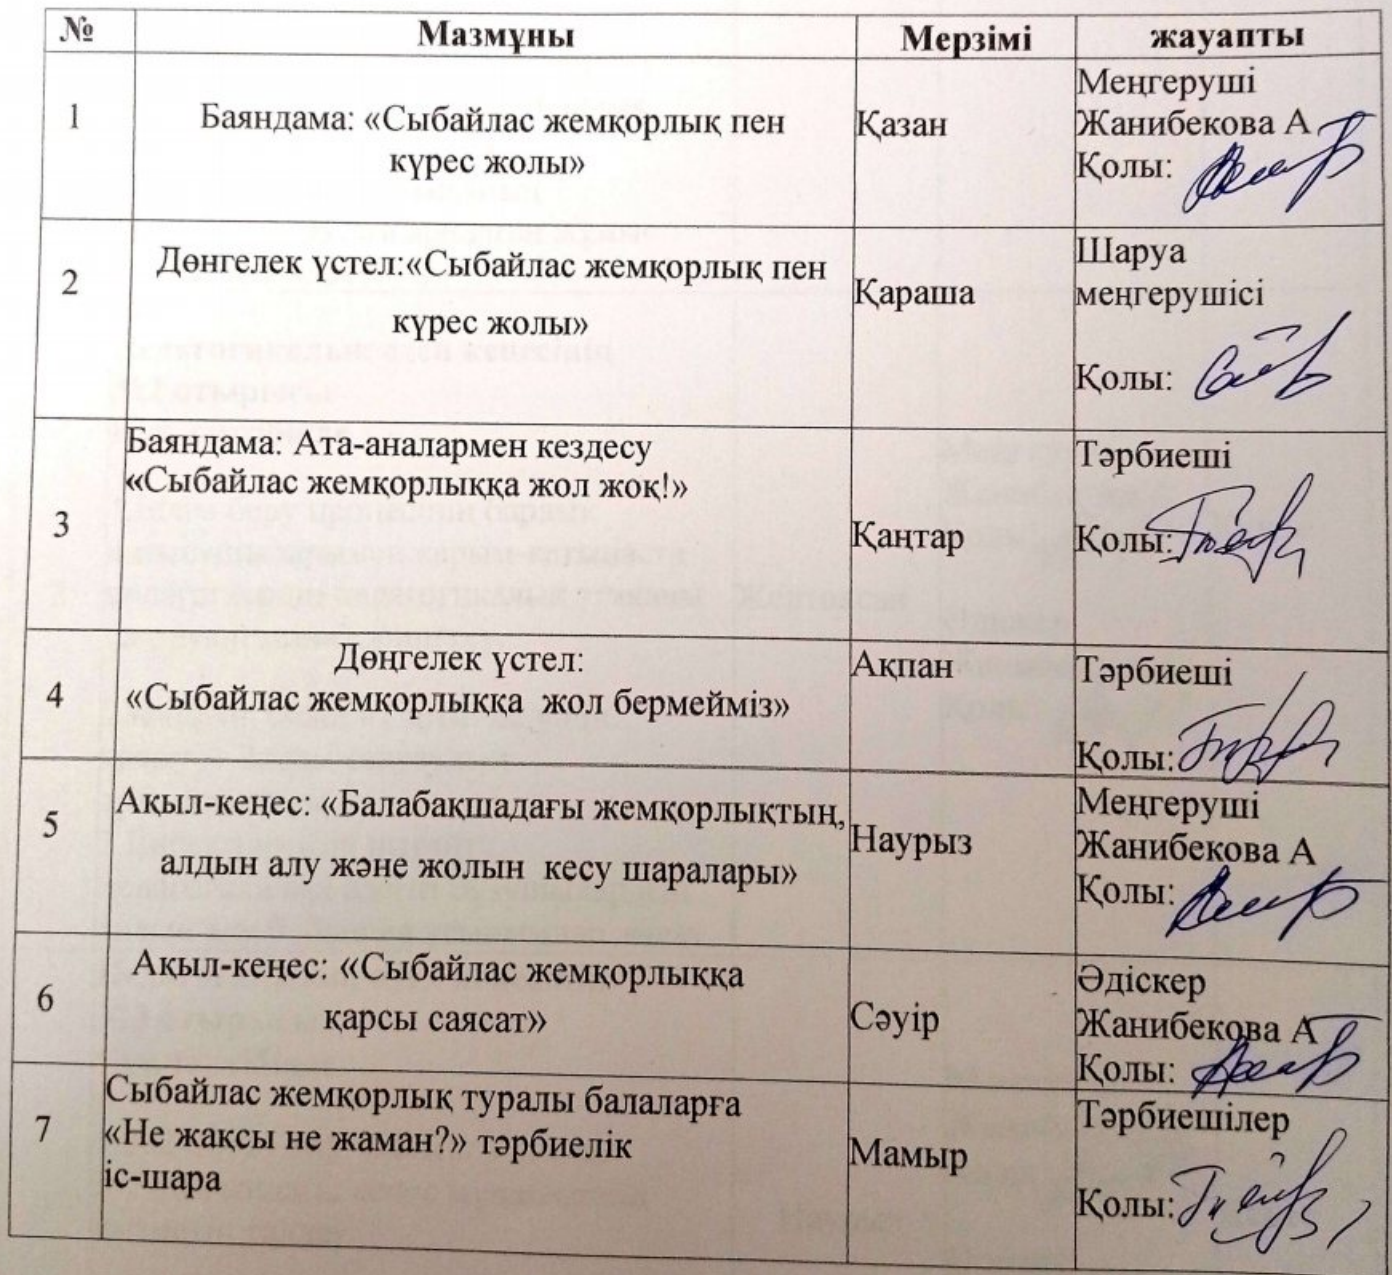 № Мазмұны Мерзімі жауапты
1 Баяндама: «Сыбайлас жемқорлық пен
күрес жолы»
Қазан
Меңгеруші
Жанибекова А
Қолы:
2 Дөнгелек үстел:«Сыбайлас жемқорлық пен
күрес жолы»
Қараша
Шаруа
меңгерушісі
Қолы:
3 Баяндама: Ата-аналармен кездесу
«Сыбайлас жемқорлыққа жол жоқ!»
Қаңтар
Тәрбиеші
Қолы:
4 Дөңгелек үстел:
«Сыбайлас жемқорлыққа жол бермейміз»
Ақпан
Тәрбиеші
Қолы:
5 Ақыл-кеңес: «Балабақшадағы жемқорлықтың,
алдын алу және жолын кесу шаралары»
Наурыз
Меңгеруші
Жанибекова А
Қолы:
6 Ақыл-кеңес: «Сыбайлас жемқорлыққа
қарсы саясат»
Сәуір
Әдіскер
Жанибекова А
Қолы:
7 Сыбайлас жемқорлық туралы балаларға
«Не жақсы не жаман?» тәрбиелік
іс-шара
Мамыр
Тәрбиешілер
Қолы: